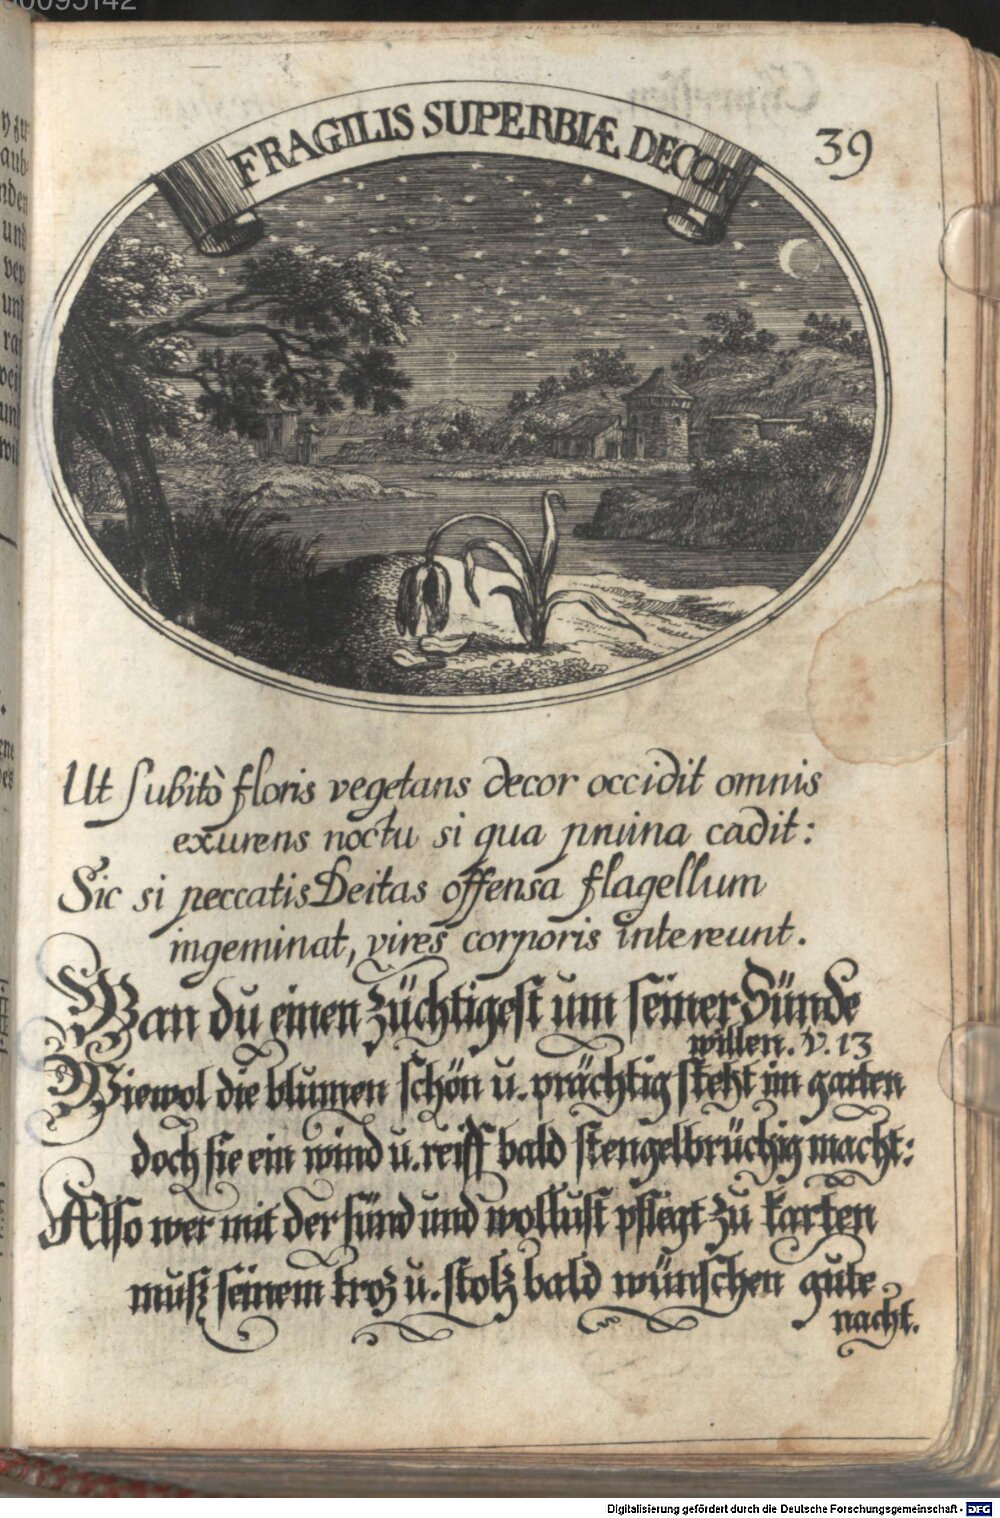 39
FRAGILIS SUPERBIÆ DECOR
Ut subitò floris vegetans decor occidit omnis
exurens noctu si qua pruina cadit:
Sic si peccatis Deitas offensa flagellum
ingeminat, vires corporis intereunt.
Wan du einen züchtigest um seiner Sünde
willen. V. 13
Wiewol die blumen schön u. prächtig steht im garten
doch sie ein wind u. reiff bald stengelbrüchig macht:
Also wer mit der sünd und wollust pflegt zu karten
muß seinem troz u. stolz bald wünschen gute
nacht.
Digitalisierung gefördert durch die Deutsche Forschungsgemeinschaft - DFG